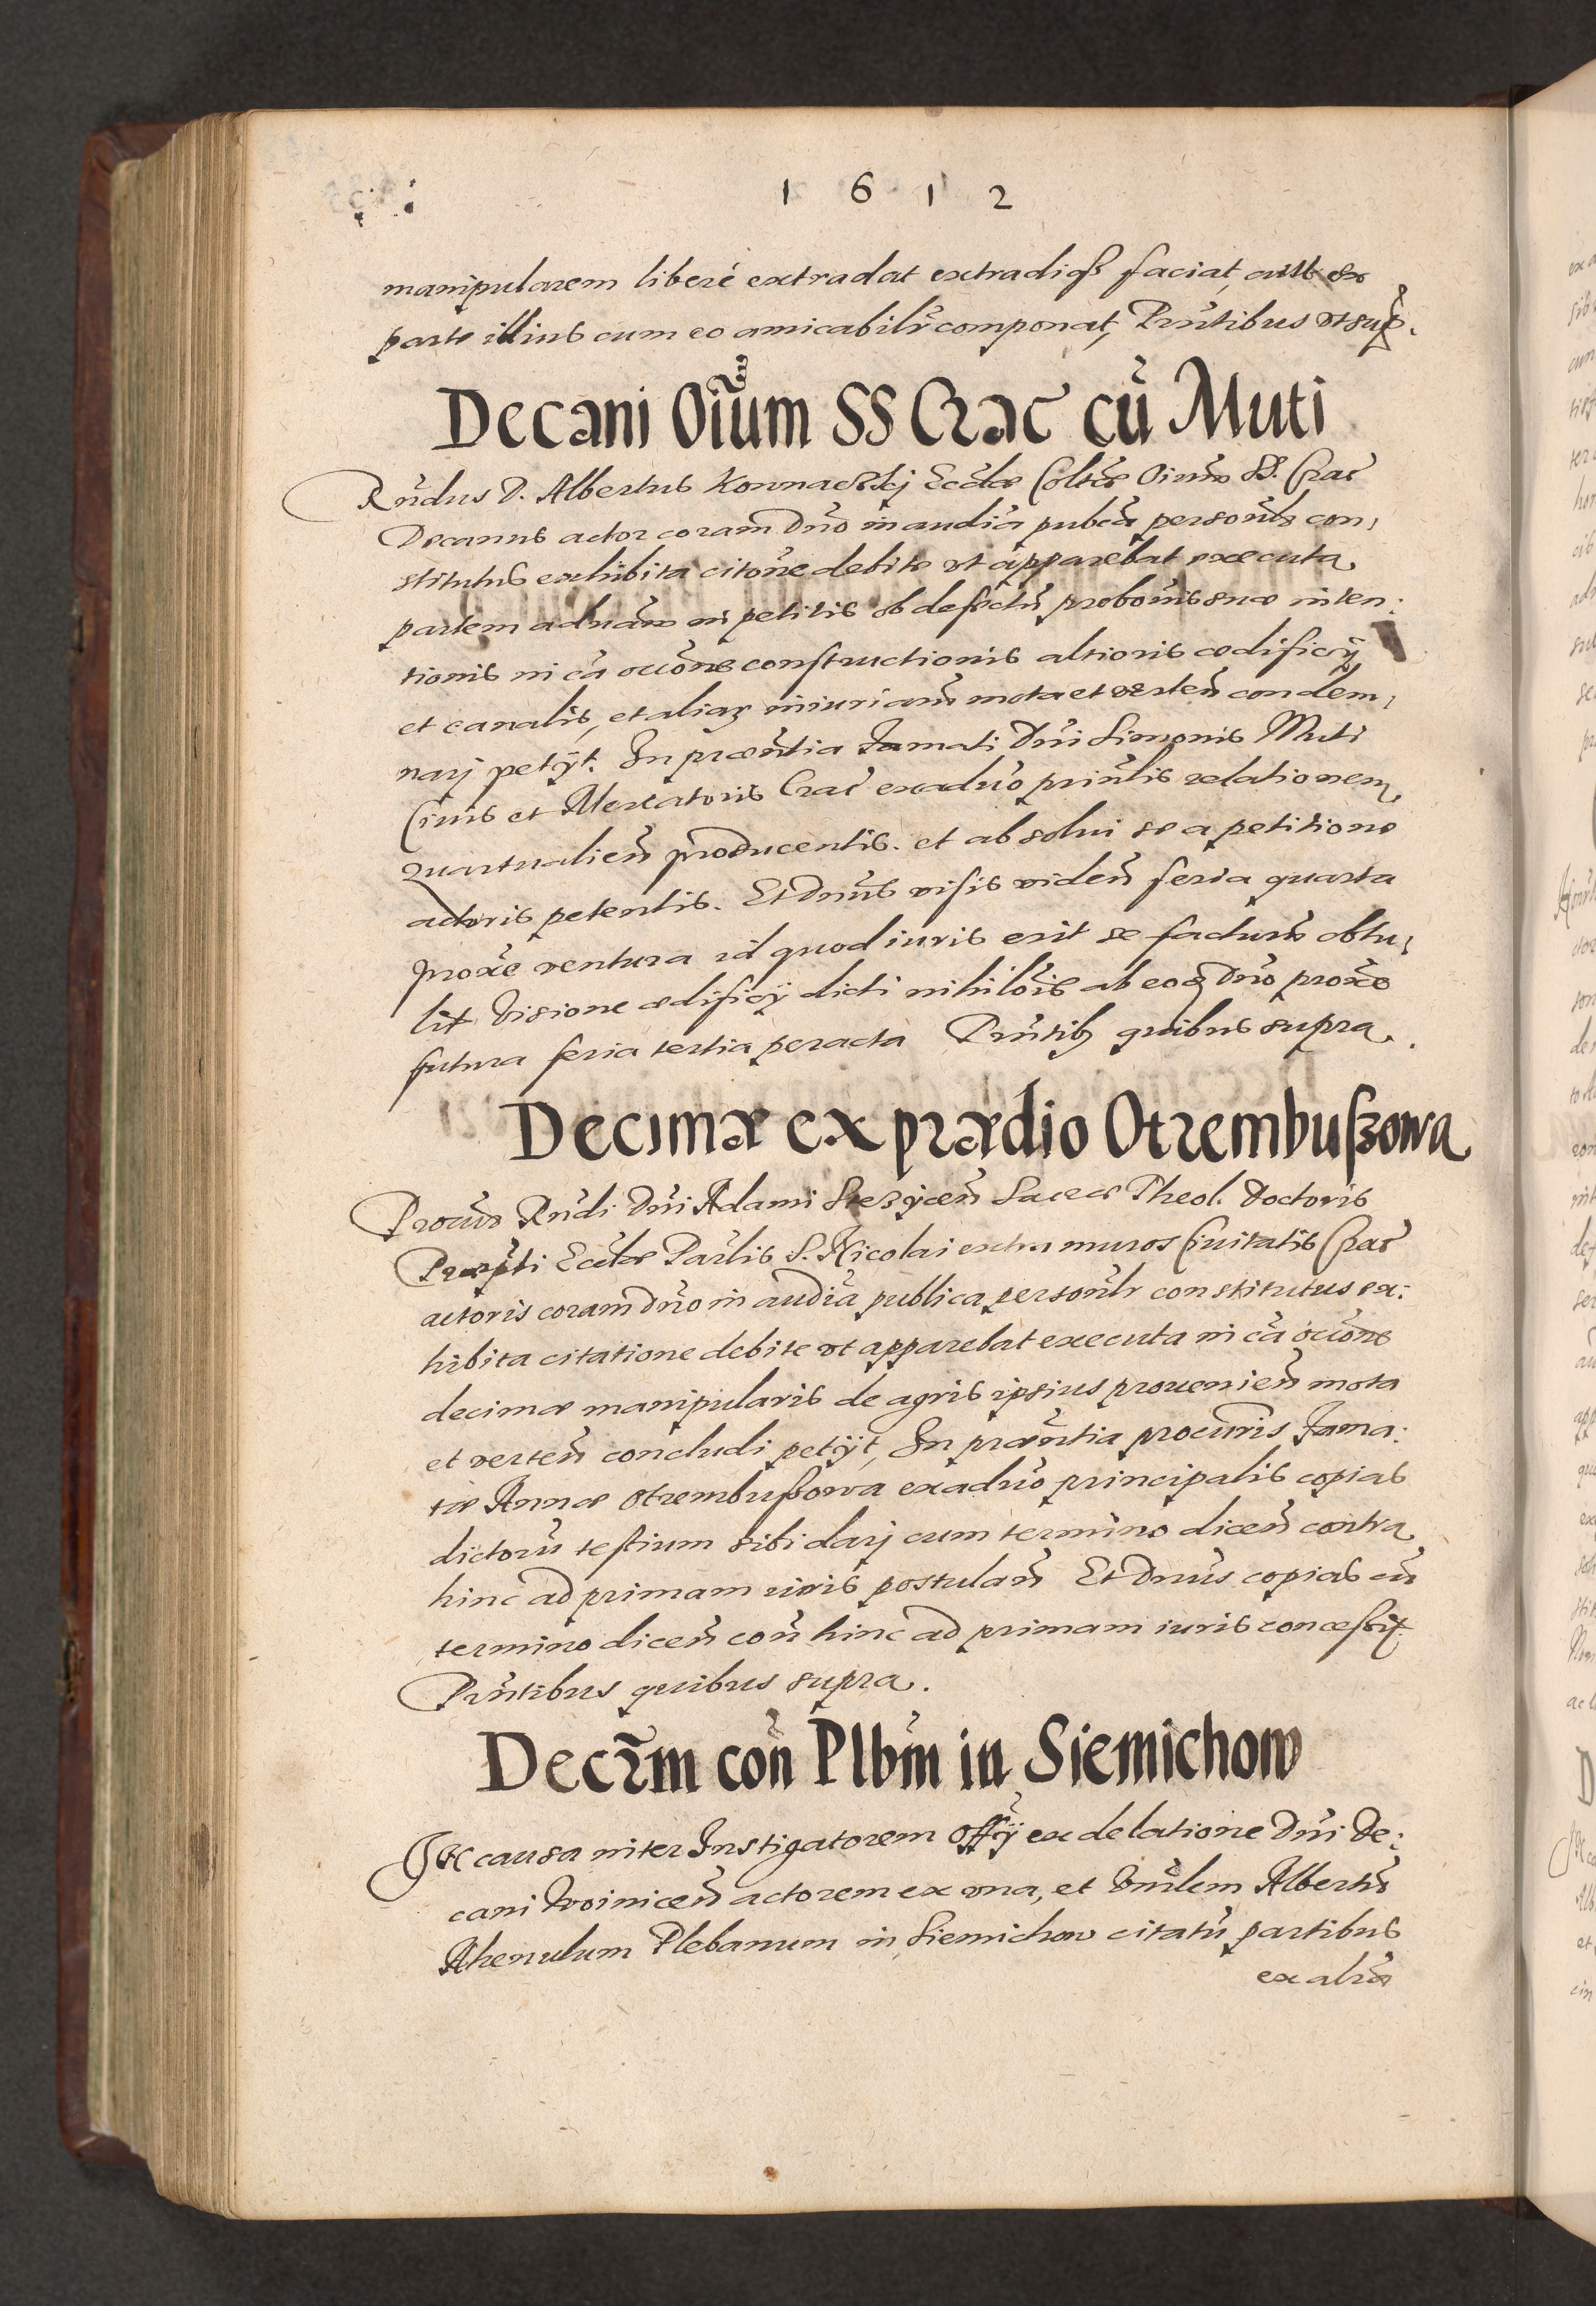 1 6 1 2
manipularem liberè extradat extradiqȝ faciat, aut ex
parte illius cum eo amicabilr̃ componat, Prñtibus vt sup̃.
Decani Oĩum SS Crac̃ cũ Muti
Rñdus D. Albertus Eccłæ Collt̃æ Oĩum SS. Crac̃
Decanus actor coram Dño in audĩa publcã personlr̃ con,
stitutus exhibita citõne debite vt apparebat executa
partem aduãm in petitis ob defectũ probõnis suæ inten:
tionis in cã occõne constructionis altioris ædificÿ
et canalis, et aliaꝝ iniuriarũ mota et verteñ condem,
narj petÿt. In præñtia Famati Dñi Simonis Muti
Ciuis et Mercatoris Crac̃ ex aduo principalis relationem
quartualieñ producentis. et absolui se a petitione
actoris petentis. Et Dnũs visis videñ feria quarta
proxẽ ventura id quod iuris erit se facturũ obtu,
lit Visione ædificÿ dicti nihilõis ab eoq̃ Dño proxẽ
futura feria tertia peracta Prñtibȝ quibus supra.
Decimæ ex prædio Otrembuſzowa
Procũr Rñdi Dñi Adami Sacræ Theol. Doctoris
Præpt̃i Eccłæ Parlĩs S. Nicolai extra muros Ciuitatis Crac̃
actoris coram Dño in audĩa publica personlr̃ constitutus ex:
hibita citatione debite vt apparebat executa in cã occõne
decimæ manipularis de agris ipsius proueñieñ mota
et verteñ concludi petÿt, In præñtia procuris̃ Fama:
tæ Annæ Otrembuſzowa ex aduo principalis copias
dictorũ testium sibi darj cum termino diceñ contra
hinc ad primam iuris postulañ Et Dnũs copias cũ
termino diceñ coñ hinc ad primam iuris concessit.
Prñtibus quibus supra.
Decr̃m coñ Plbm̃ in Siemichow
In causa inter Instigatorem Offÿ ex delatione Dñi De:
cani Woiniceñ actorem ex vna, et Vñrlem Albertũ
Plebanum in Siemichow citatũ partibus
ex altera